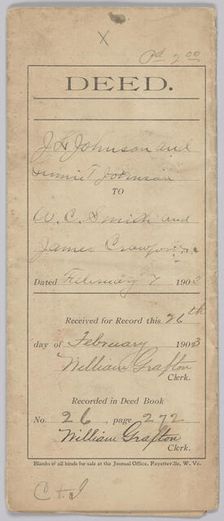 X
Pd 2.00
DEED.
J L Johnson and
Johnson
TO
W. C. Smith and
James Crawford
Dated February 7 1903
Received for Record this 26th
day of February 1903
William Grafton
Clerk.
Recorded in Deed Book
No. 26 page 272
William Grafton
Clerk.
Blanks of all kinds for sale at the Journal Office, Fayetteville, W. Va.